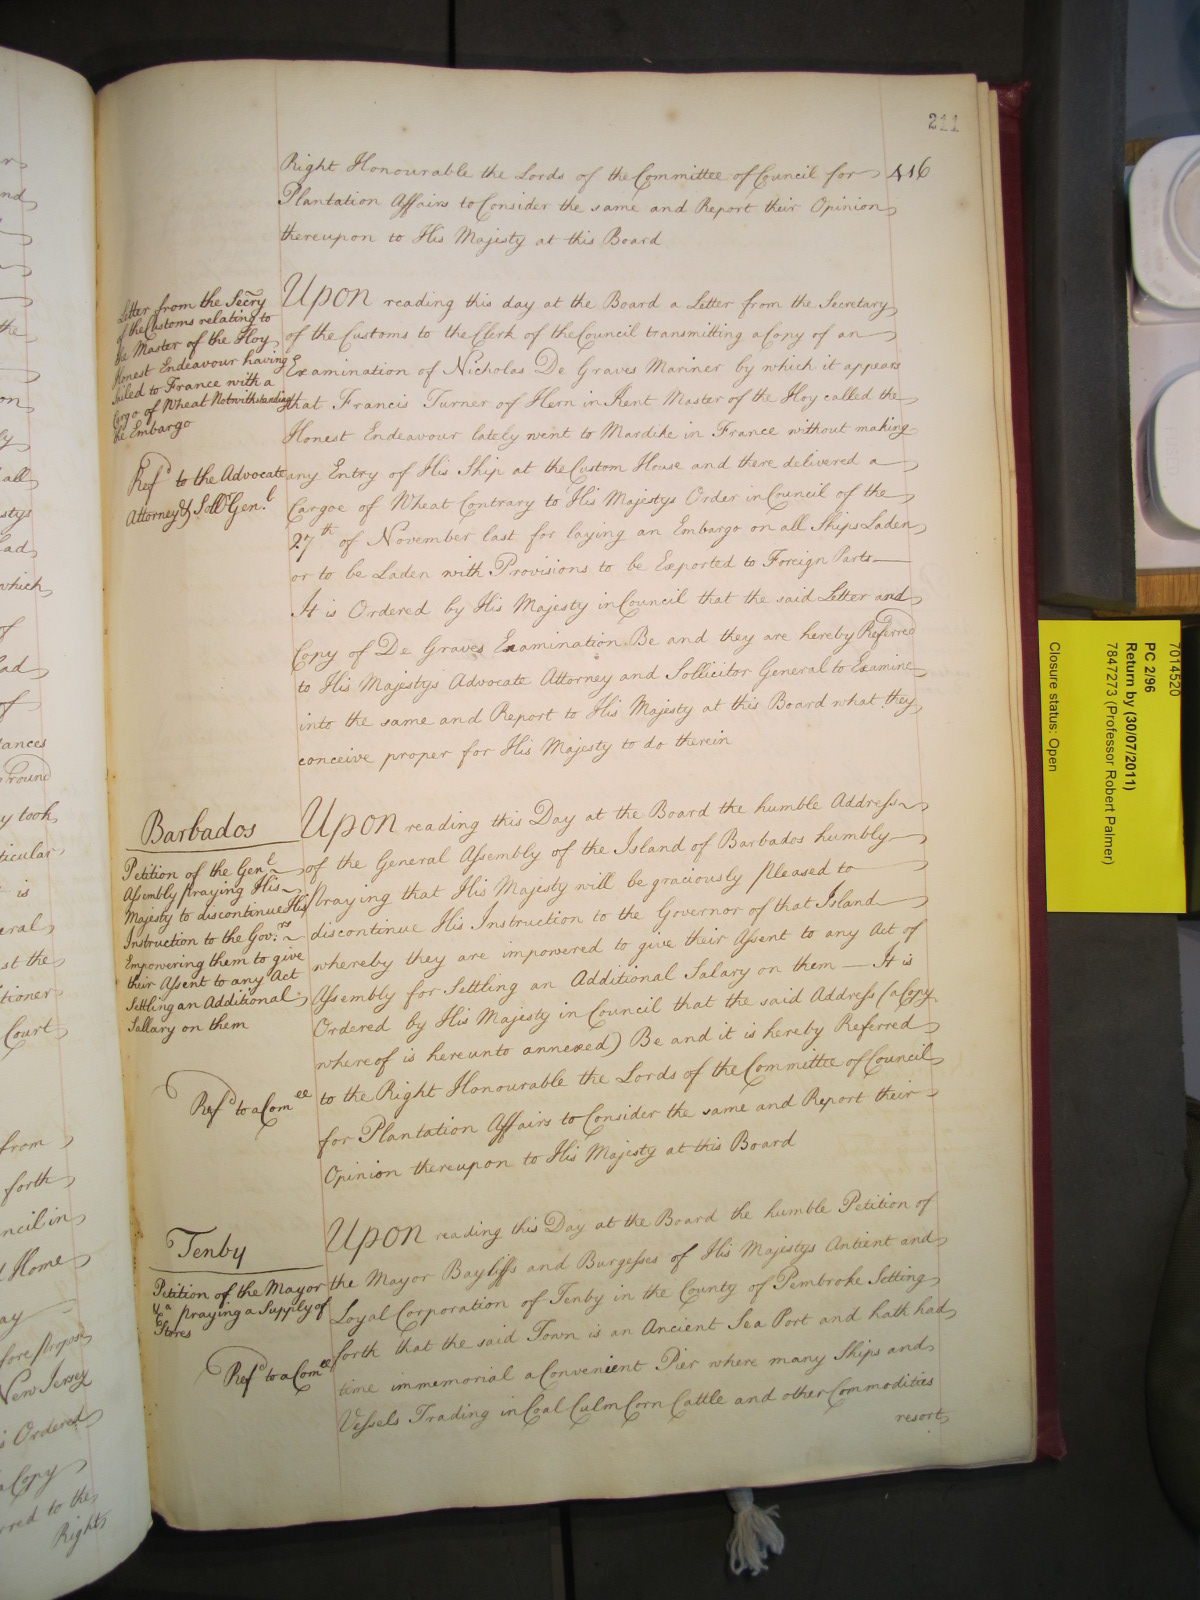 211
416
Right Honourable the Lords of the Committee of Council for
Plantation Affairs to Consider the same and Report their Opinion
thereupon to His Majesty at this Board
Letter from the Secry
of the Customs relating to
the Master of the Hoy
Honest Endeavour having
sailed to France with a
Cargo of Wheat Notwithstanding
the Embargo
Ref^d to the Advocate
Attorney & Soll^r Gen^l
Upon reading this day at the Board a Letter from the Secretary
of the Customs to the Clerk of the Council transmitting a Copy of an
Examination of Nicholas De Graves Mariner by which it appears
that Francis Turner of Hern in Kent Master of the Hoy called the
Honest Endeavour lately went to Mardike in France without making
any Entry of His Ship at the Custom House and there delivered a
Cargoe of Wheat Contrary to His Majestys Order in Council of the
27th of November last for laying an Embargo on all Ships Laden
or to be Laden with Provisions to be Exported to Foreign Parts
It is Ordered by His Majesty in Council that the said Letter and
Copy of De Graves Examination Be and they are hereby Referred
to His Majestys Advocate Attorney and Sollicitor General to Examine
into the same and Report to His Majesty at this Board what they
conceive proper for His Majesty to do therein
Barbados
Petition of the Gen^l
Assembly praying His
Majesty to discontinue His
Instruction to the Gov^rs
Empowering them to give
their Assent to any Act
Settling an Additional
Sallary on them
Ref^d to a Com^ee
Upon reading this Day at the Board the humble Address
of the General Assembly of the Island of Barbados humbly
praying that His Majesty will be graciously pleased to
discontinue His Instruction to the Governor of that Island
whereby they are impowered to give their Assent to any Act of
Assembly for Settling an Additional Salary on them — It is
Ordered by His Majesty in Council that the said Address (a Copy
whereof is hereunto annexed) Be and it is hereby Referred
to the Right Honourable the Lords of the Committee of Council
for Plantation Affairs to Consider the same and Report their
Opinion thereupon to His Majesty at this Board
Tenby
Petition of the Mayor
&ca praying a Supply of
Stores
Ref^d to a Com^ee
Upon reading this Day at the Board the humble Petition of
the Mayor Bayliffs and Burgesses of His Majestys Antient and
Loyal Corporation of Tenby in the County of Pembroke Setting
forth that the said Town is an Ancient Sea Port and hath had
time immemorial a Convenient Pier where many Ships and
Vessels Trading in Coal Culm Corn Cattle and other Commodities
resort
7814520
PC 2/96
Return by (30/07/2011)
7847273 (Professor Robert Palmer)
Closure status: Open
the
all
which
of
took
ticular
is
eral
st the
tioner
Court
from
forth
ncil in
Home
New Jersey
is Ordered
a Copy
rred to the
Right